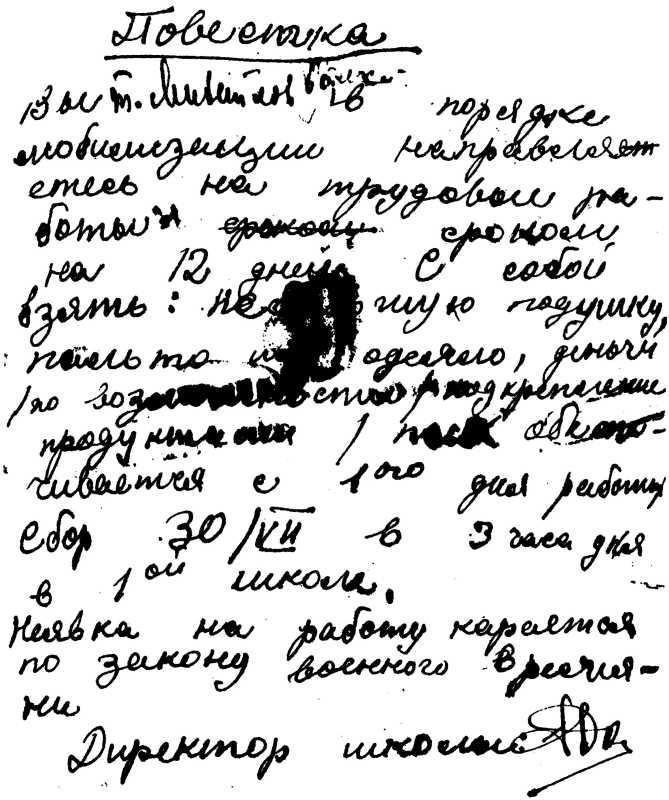 Повестка
Вы т. в порядке
мобилизации направляет
етесь на трудовые ра-
боты сроком
на 12 дней. С собой
взять: шую подушку,
пальто одеяло, деньги
/по подкрепление
продуктами/ обеспе-
чивается с 1ого дня работы
Сбор 30/VII в 3 часа дня
в 1ой школе.
Неявка на работу карается
по закону военного времи-
ни
Директор школы